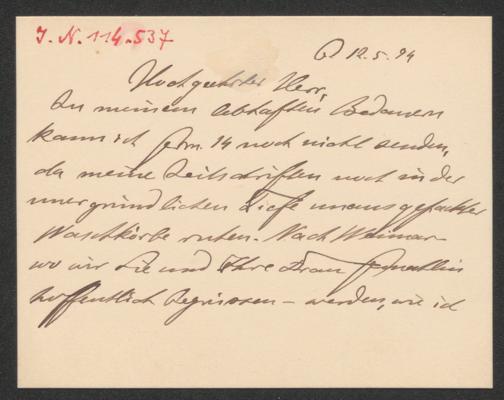 I. N. 114.537
12.5.94
Hochgeehrter Herr,
Zu meinem lebhaften Bedauern
kann ich 14 noch nicht senden,
da meine Zeitschriften noch in der
unergründlichen Tiefe unausgepackter
Waschkörbe ruhen. Nach Weimar –
wo wir Sie und Ihre Frau Gemahlin
hoffentlich begrüssen – werden, wie ich